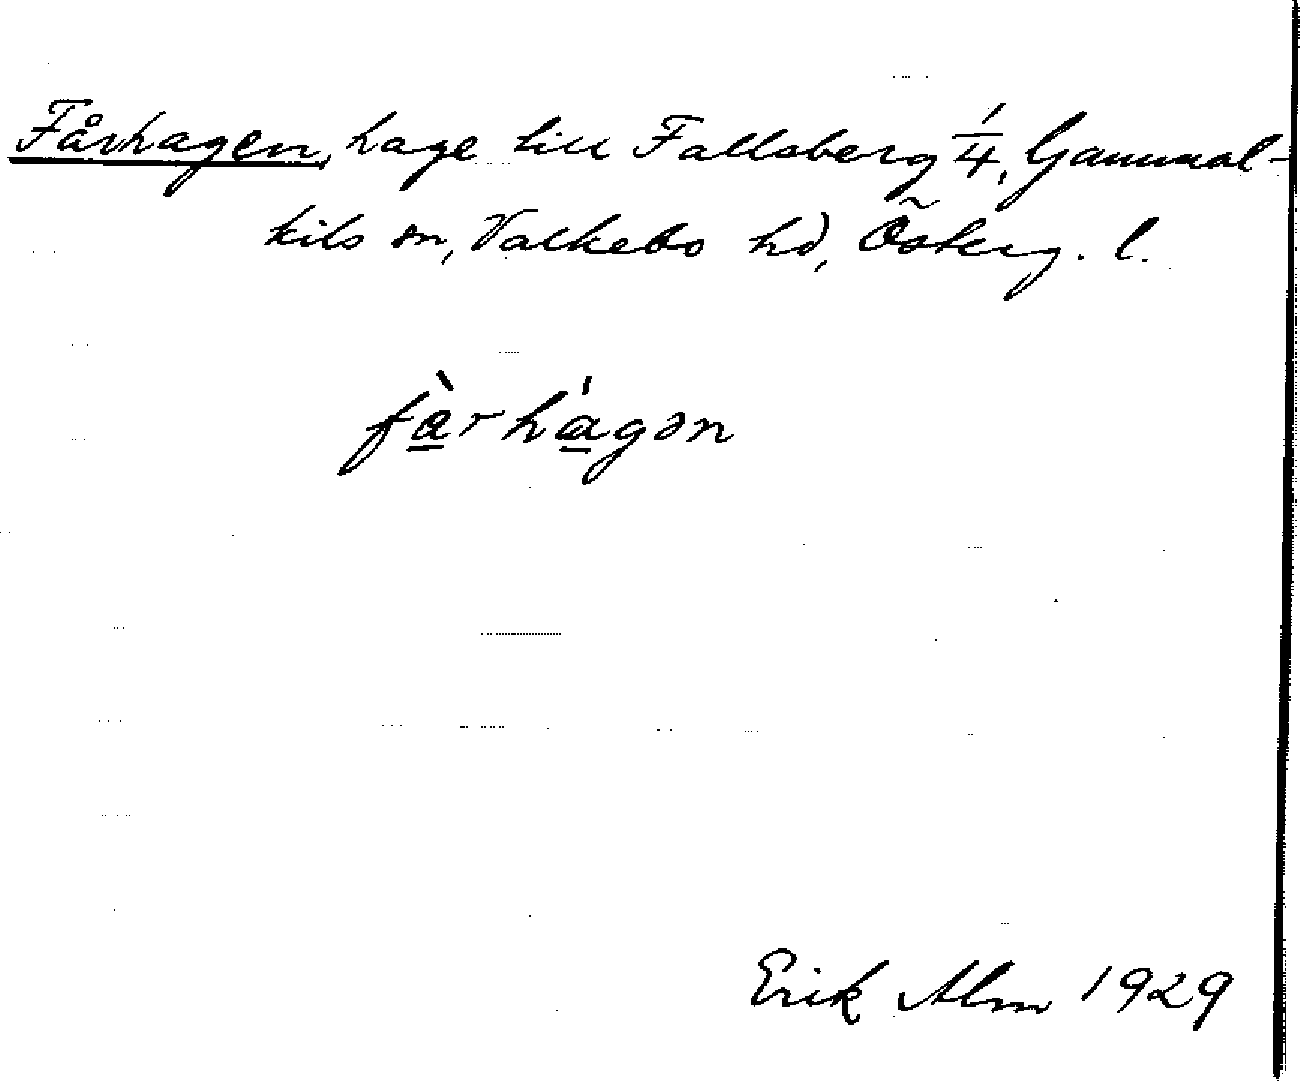 Fårhagen, hage till Fallsberg 1/4, Gammal-
kils sn, Valkebo hd, Österg. l.
fà̲rhá̲gən
Erik Alm 1929